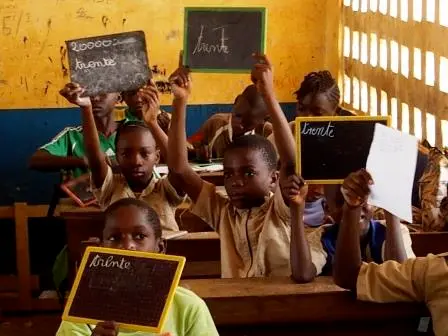 20000
trente
trente
trente
trente